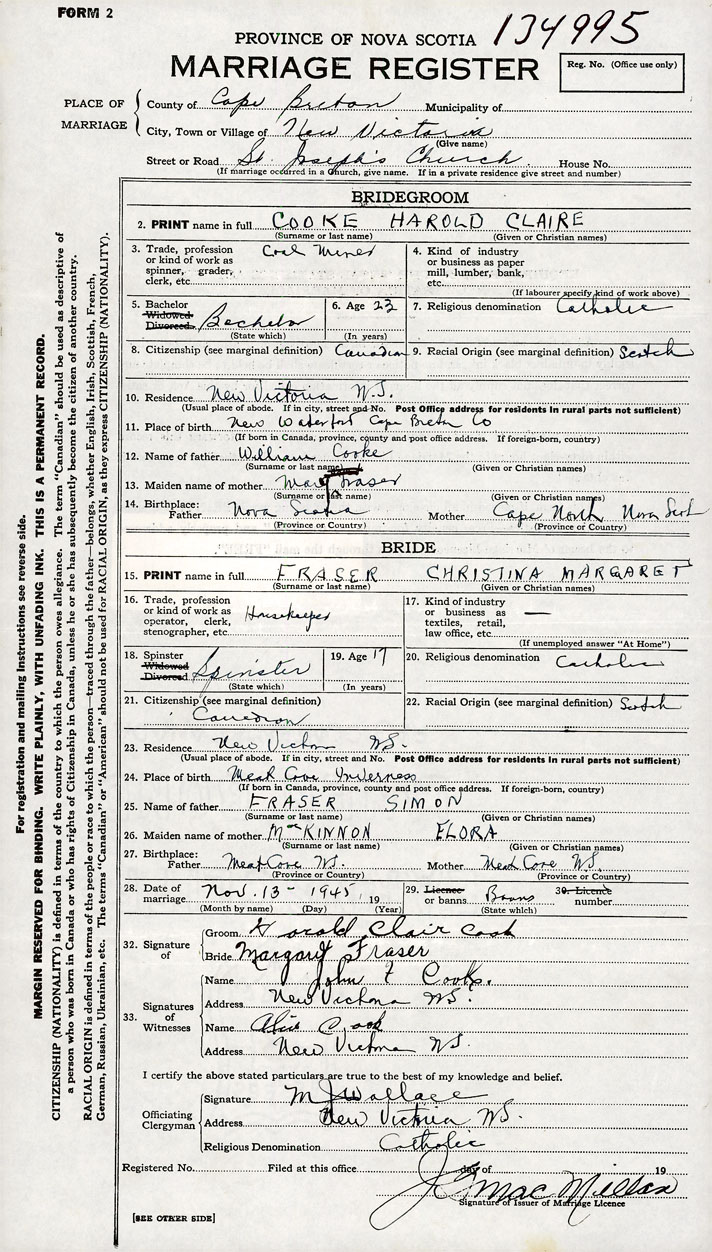 FORM 2
134995
PROVINCE OF NOVA SCOTIA
MARRIAGE REGISTER
Reg. No. (Office use only)
PLACE OF MARRIAGE
County of Cape Breton Municipality of
City, Town or Village of New Victoria
(Give name)
Street or Road St. Joseph's Church. House No.
(If marriage occurred in a Church, give name. If in a private residence give street and number)
BRIDEGROOM
2. PRINT name in full COOKE HAROLD CLAIRE
(Surname or last name) (Given or Christian names)
3. Trade, profession or kind of work as spinner, grader, clerk, etc. Coal Miner
4. Kind of industry or business as paper mill, lumber, bank, etc.
(If labourer specify kind of work above)
5. Bachelor Widowed Divorced Bachelor
(State which)
6. Age 23
(In years)
7. Religious denomination Catholic
8. Citizenship (see marginal definition) Canadian
9. Racial Origin (see marginal definition) Scotch
10. Residence New Victoria N.S.
(Usual place of abode. If in city, street and No. Post Office address for residents in rural parts not sufficient)
11. Place of birth New Waterford Cape Breton Co
(If born in Canada, province, county and post office address. If foreign-born, country)
12. Name of father William Cooke
(Surname or last name) (Given or Christian names)
13. Maiden name of mother Mary Fraser
(Surname or last name) (Given or Christian names)
14. Birthplace: Father Nova Scotia Mother Cape North Nova Scot
(Province or Country) (Province or Country)
BRIDE
15. PRINT name in full FRASER CHRISTINA MARGARET
(Surname or last name) (Given or Christian names)
16. Trade, profession or kind of work as operator, clerk, stenographer, etc. Housekeeper
17. Kind of industry or business as textiles, retail, law office, etc. —
(If unemployed answer "At Home")
18. Spinster Widowed Divorced Spinster
(State which)
19. Age 17
(In years)
20. Religious denomination Catholic
21. Citizenship (see marginal definition) Canadian
22. Racial Origin (see marginal definition) Scotch
23. Residence New Victoria N.S.
(Usual place of abode. If in city, street and No. Post Office address for residents in rural parts not sufficient)
24. Place of birth Meat Cove Inverness
(If born in Canada, province, county and post office address. If foreign-born, country)
25. Name of father FRASER SIMON
(Surname or last name) (Given or Christian names)
26. Maiden name of mother McKINNON FLORA
(Surname or last name) (Given or Christian names)
27. Birthplace: Father Meat Cove N.S. Mother Meat Cove N.S.
(Province or Country)
28. Date of marriage Nov. 13 - 1945, 19
(Month by name) (Day) (Year)
29. Licence or banns Banns
(State which)
30. Licence number
32. Signature of
Groom Harold Clair Cook
Bride Margaret Fraser
33. Signatures of Witnesses
Name John F Cook.
Address New Victoria N.S.
Name Cook
Address New Victoria N.S.
I certify the above stated particulars are true to the best of my knowledge and belief.
Officiating Clergyman
Signature M J Wallace
Address New Victoria N.S.
Religious Denomination Catholic
Registered No. Filed at this office day of 19
MacMillan
Signature of Issuer of Marriage Licence
[SEE OTHER SIDE]
For registration and mailing instructions see reverse side.
MARGIN RESERVED FOR BINDING. WRITE PLAINLY, WITH UNFADING INK. THIS IS A PERMANENT RECORD.
CITIZENSHIP (NATIONALITY) is defined in terms of the country to which the person owes allegiance. The term "Canadian" should be used as descriptive of
a person who was born in Canada or who has rights of Citizenship in Canada, unless he or she has subsequently become the citizen of another country.
RACIAL ORIGIN is defined in terms of the people or race to which the person—traced through the father—belongs, whether English, Irish, Scottish, French,
German, Russian, Ukrainian, etc. The terms "Canadian" or "American" should not be used for RACIAL ORIGIN, as they express CITIZENSHIP (NATIONALITY).